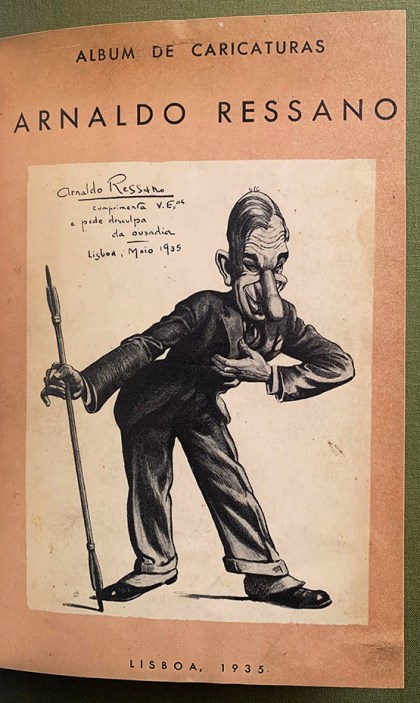 ALBUM DE CARICATURAS
ARNALDO RESSANO
Arnaldo Ressano
cumprimenta V. E.as
e pede desculpa
da ousadia
Lisboa, Maio 1935
LISBOA, 1935